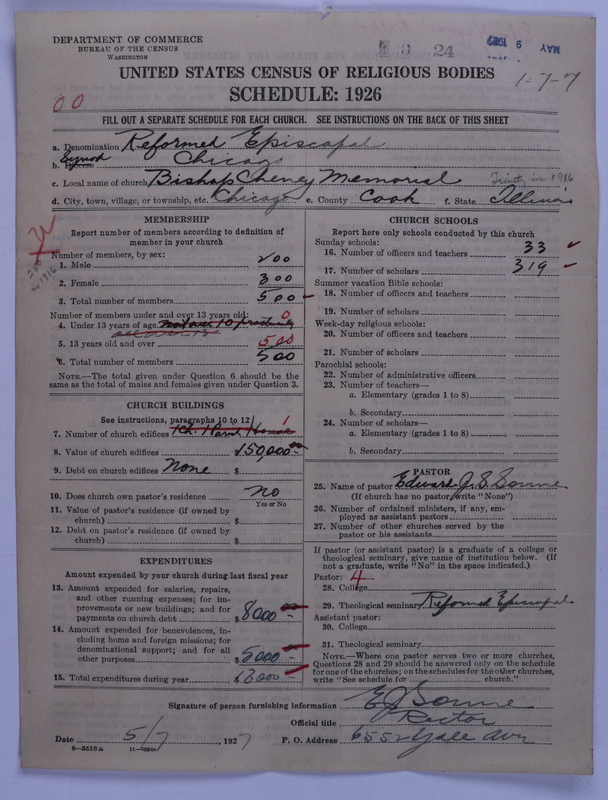 DEPARTMENT OF COMMERCE
BUREAU OF THE CENSUS
WASHINGTON
24
MAY 9 1927
UNITED STATES CENSUS OF RELIGIOUS BODIES
1-7-7
SCHEDULE: 1926
00
FILL OUT A SEPARATE SCHEDULE FOR EACH CHURCH. SEE INSTRUCTIONS ON THE BACK OF THIS SHEET
a. Denomination Reformed Episcopal
b. Synod Chicago
c. Local name of church Bishop Cheney Memorial Trinity in 1916
d. City, town, village, or township, etc. Chicago e. County Cook f. State Illinois
MEMBERSHIP
Report number of members according to definition of member in your church
Number of members, by sex:
1. Male 200
2. Female 300
3. Total number of members 500
Number of members under and over 13 years old:
4. Under 13 years of age 0
5. 13 years old and over 500
6. Total number of members 500
NOTE.—The total given under Question 6 should be the
same as the total of males and females given under Question 3.
CHURCH BUILDINGS
See instructions, paragraphs 10 to 12
7. Number of church edifices 1 Ch. 1 Parish House 1
8. Value of church edifices $ 150,000
9. Debt on church edifices None
10. Does church own pastor's residence no
Yes or No
11. Value of pastor's residence (if owned by
church) $
12. Debt on pastor's residence (if owned by
church) $
EXPENDITURES
Amount expended by your church during last fiscal year
13. Amount expended for salaries, repairs,
and other running expenses; for im-
provements or new buildings; and for
payments on church debt $ 8000
14. Amount expended for benevolences, in-
cluding home and foreign missions; for
denominational support; and for all
other purposes $ 5000
15. Total expenditures during year 13000
CHURCH SCHOOLS
Report here only schools conducted by this church
Sunday schools:
16. Number of officers and teachers 33
17. Number of scholars 319
Summer vacation Bible schools:
18. Number of officers and teachers
19. Number of scholars
Week-day religious schools:
20. Number of officers and teachers
21. Number of scholars
Parochial schools:
22. Number of administrative officers
23. Number of teachers—
a. Elementary (grades 1 to 8)
b. Secondary
24. Number of scholars—
a. Elementary (grades 1 to 8)
b. Secondary
PASTOR
25. Name of pastor Edward J. S. Sonne
(If church has no pastor, write "None")
26. Number of ordained ministers, if any, em-
ployed as assistant pastors
27. Number of other churches served by the
pastor or his assistants
If pastor (or assistant pastor) is a graduate of a college or
theological seminary, give name of institution below. (If
not a graduate, write "No" in the space indicated.)
Pastor: 4
28. College
29. Theological seminary Reformed Episcopal
Assistant pastor:
30. College
31. Theological seminary
NOTE.—Where one pastor serves two or more churches,
Questions 28 and 29 should be answered only on the schedule
for one of the churches; on the schedules for the other churches,
write "See schedule for church."
Signature of person furnishing information E J Sonne
Official title Rector
Date 5/7, 1927 P. O. Address 6552 Yale Ave
8-5518 a